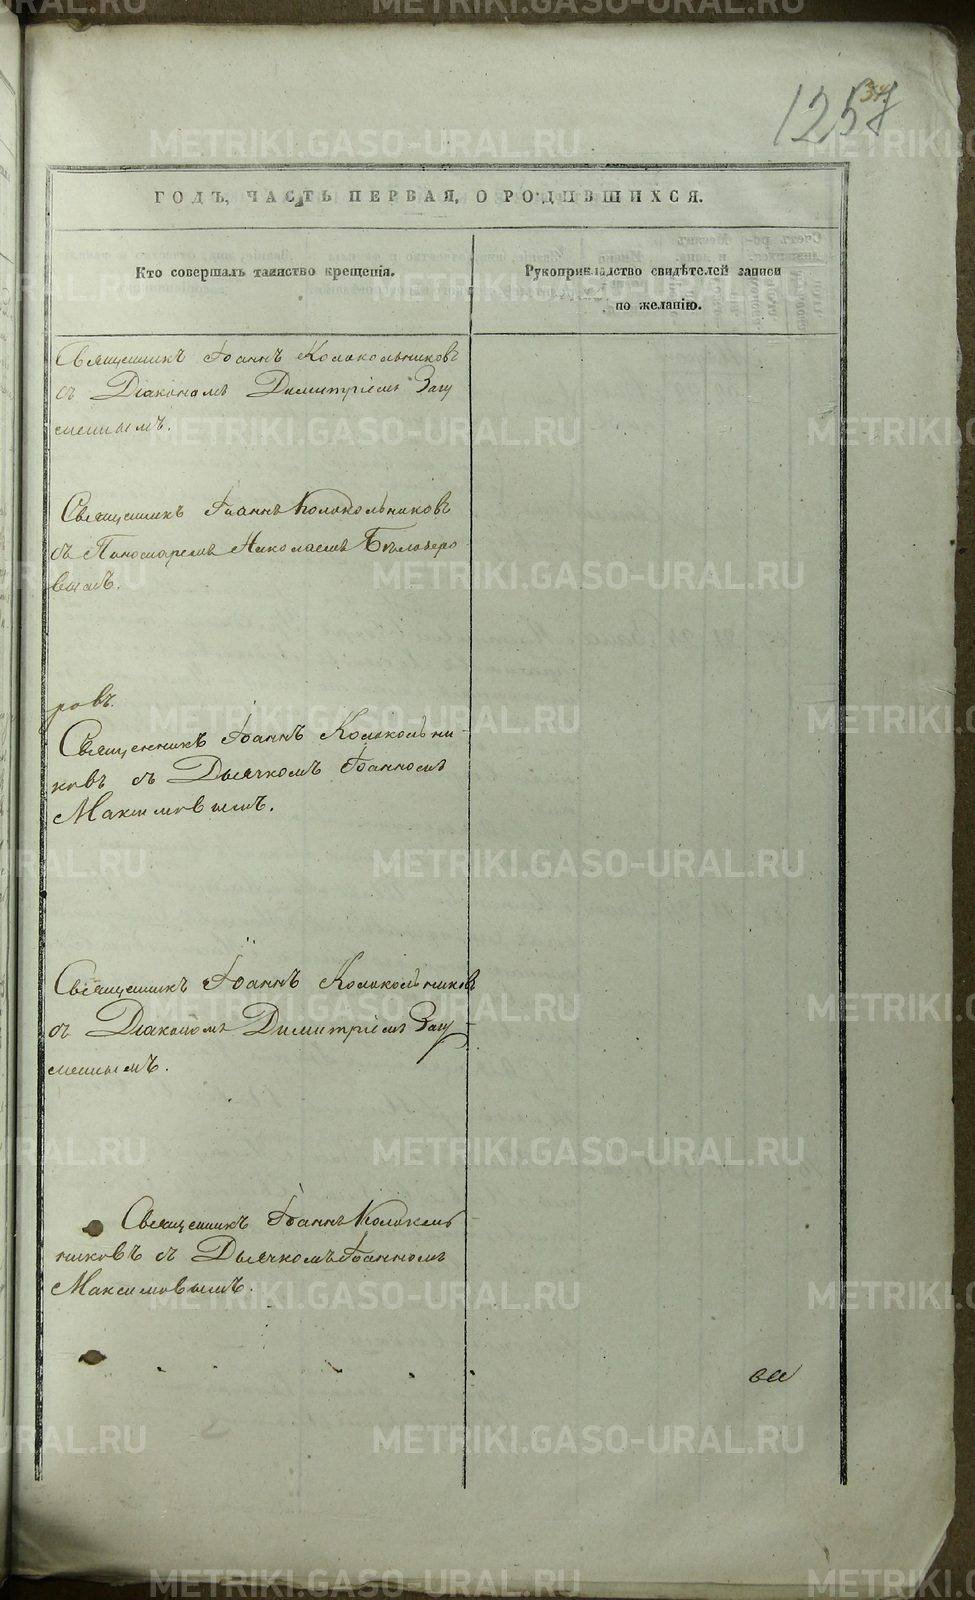 1257
34
ГОДЪ, ЧАСТЬ ПЕРВАЯ, О РОДИВШИХСЯ.
Кто совершалъ таинство крещенія.
Рукоприкладство свидѣтелей записи
по желанію.
Священникъ Іоаннъ Колокольниковъ
съ Діакономъ Димитріемъ Загу
меннымъ.
Священникъ Іоаннъ Колокольниковъ
съ Пономаремъ Николаемъ Бѣлозеро
вымъ.
ровъ.
Священникъ Іоаннъ Колокольни-
ковъ съ Дьячкомъ Іоанномъ
Максимовымъ.
Священникъ Іоаннъ Колокольниковъ
съ Діакономъ Димитріемъ Загу-
меннымъ.
Священникъ Іоаннъ Колоколь
никовъ съ Дьячкомъ Іоанномъ
Максимовымъ.
METRIKI.GASO-URAL.RU